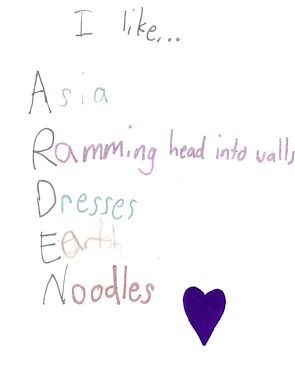 I like...
Asia
Ramming head into walls
Dresses
Earth
Noodles